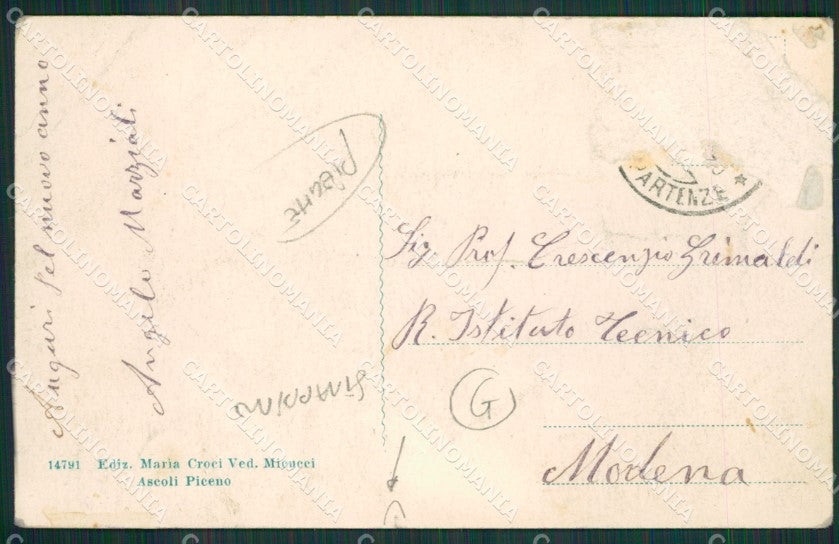 Auguri pel nuovo anno
Angelo Marziali
PARTENZE *
Sig. Prof. Crescenzio Grimaldi
R. Istituto Tecnico
G
Modena
14791 Ediz. Maria Croci Ved. Micucci
Ascoli Piceno
CARTOLINOMANIA